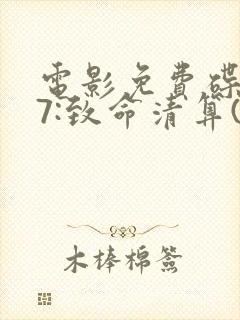 電影免費碟
7:致命清算(
木棒棉簽